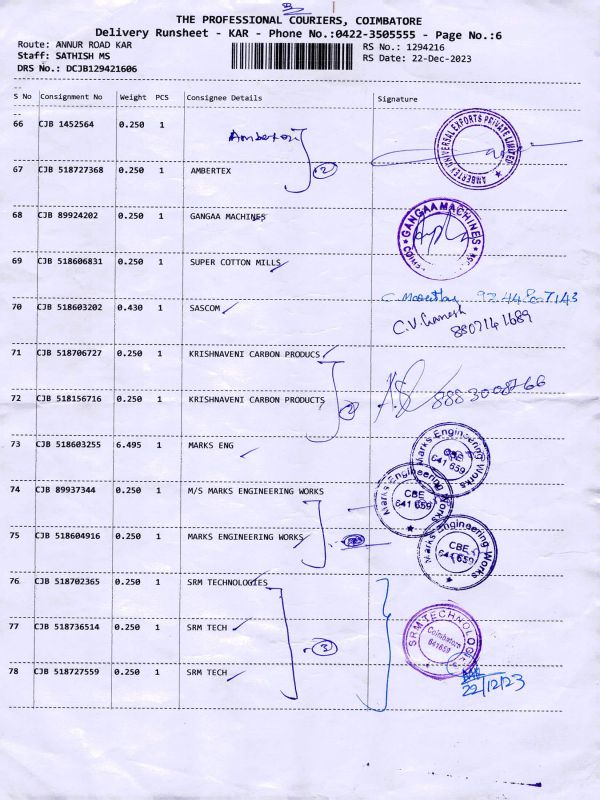 THE PROFESSIONAL COURIERS, COIMBATORE
Delivery Runsheet - KAR - Phone No.:0422-3505555 - Page No.:6
Route: ANNUR ROAD KAR
Staff: SATHISH MS
DRS No.: DCJB129421606
RS No.: 1294216
RS Date: 22-Dec-2023
S No Consignment No Weight PCS Consignee Details Signature
66 CJB 1452564 0.250 1 Ambertex
AMBERTEX UNIVERSAL EXPORTS PRIVATE LIMITED
67 CJB 518727368 0.250 1 AMBERTEX 2
68 CJB 89924202 0.250 1 GANGAA MACHINES
GANGAA MACHINES
69 CJB 518606831 0.250 1 SUPER COTTON MILLS
70 CJB 518603202 0.430 1 SASCOM
C.V. Ganesh
71 CJB 518706727 0.250 1 KRISHNAVENI CARBON PRODUCS
72 CJB 518156716 0.250 1 KRISHNAVENI CARBON PRODUCTS 2
73 CJB 518603255 6.495 1 MARKS ENG
Marks Engineering Works
641 659
74 CJB 89937344 0.250 1 M/S MARKS ENGINEERING WORKS
Marks Engineering Works
CBE
641 659
75 CJB 518604916 0.250 1 MARKS ENGINEERING WORKS
Marks Engineering Works
CBE
641 659
76 CJB 518702365 0.250 1 SRM TECHNOLOGIES
77 CJB 518736514 0.250 1 SRM TECH 3
Coimbatore
641659
78 CJB 518727559 0.250 1 SRM TECH
22/12/23